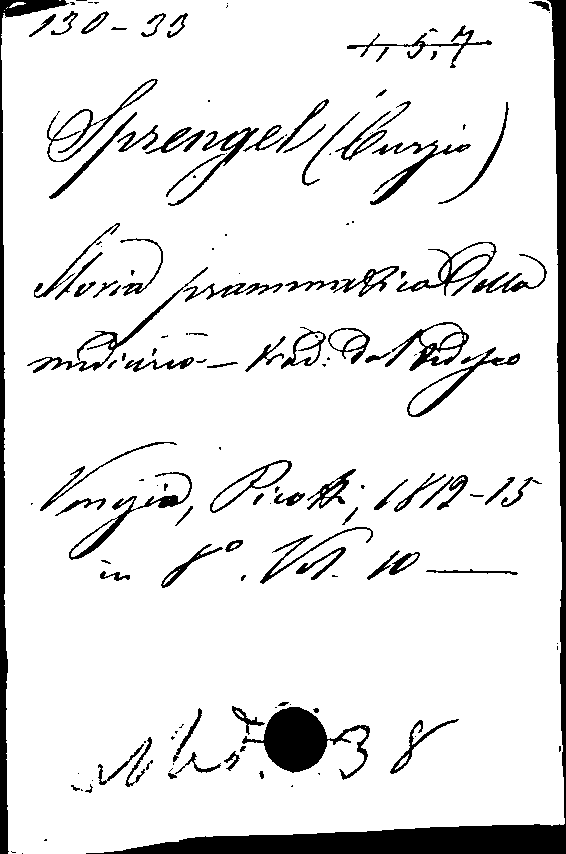 130-33
1, 5, 7
Sprengel (Curzio)
Storia prammatica della
medicina - trad: dal tedesco
Venezia, Picotti, 1812-15
in 8°. Vol. 10
38